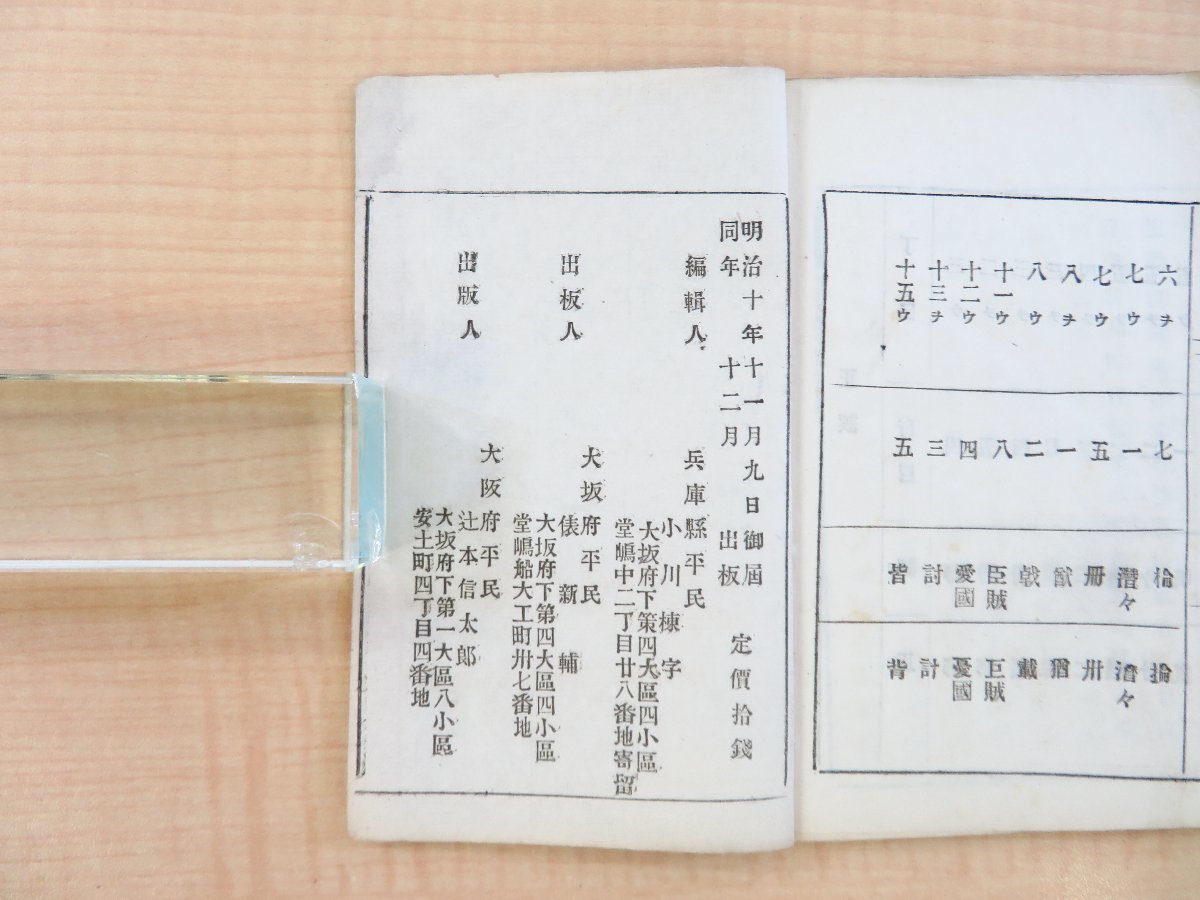 六ヲ 七
七ウ 一 潸々
七ウ 五 冊 卅
八ヲ 一 猷 猶
八ウ 二 戟 戴
十一ウ 八 臣賊 巨賊
十二ウ 四 愛國 憂國
十三ヲ 三 討 計
十五ウ 五 皆 背
明治十年十一月九日御届
同年十二月出板 定價拾錢
編輯人 兵庫縣平民
小川棟字
大坂府下策四大區四小區
堂嶋中二丁目廿八番地寄留
出板人 大坂府平民
俵新輔
大坂府下第四大區四小區
堂嶋船大工町卅七番地
出版人 大阪府平民
辻本信太郎
大坂府下第一大區八小區
安土町四丁目四番地